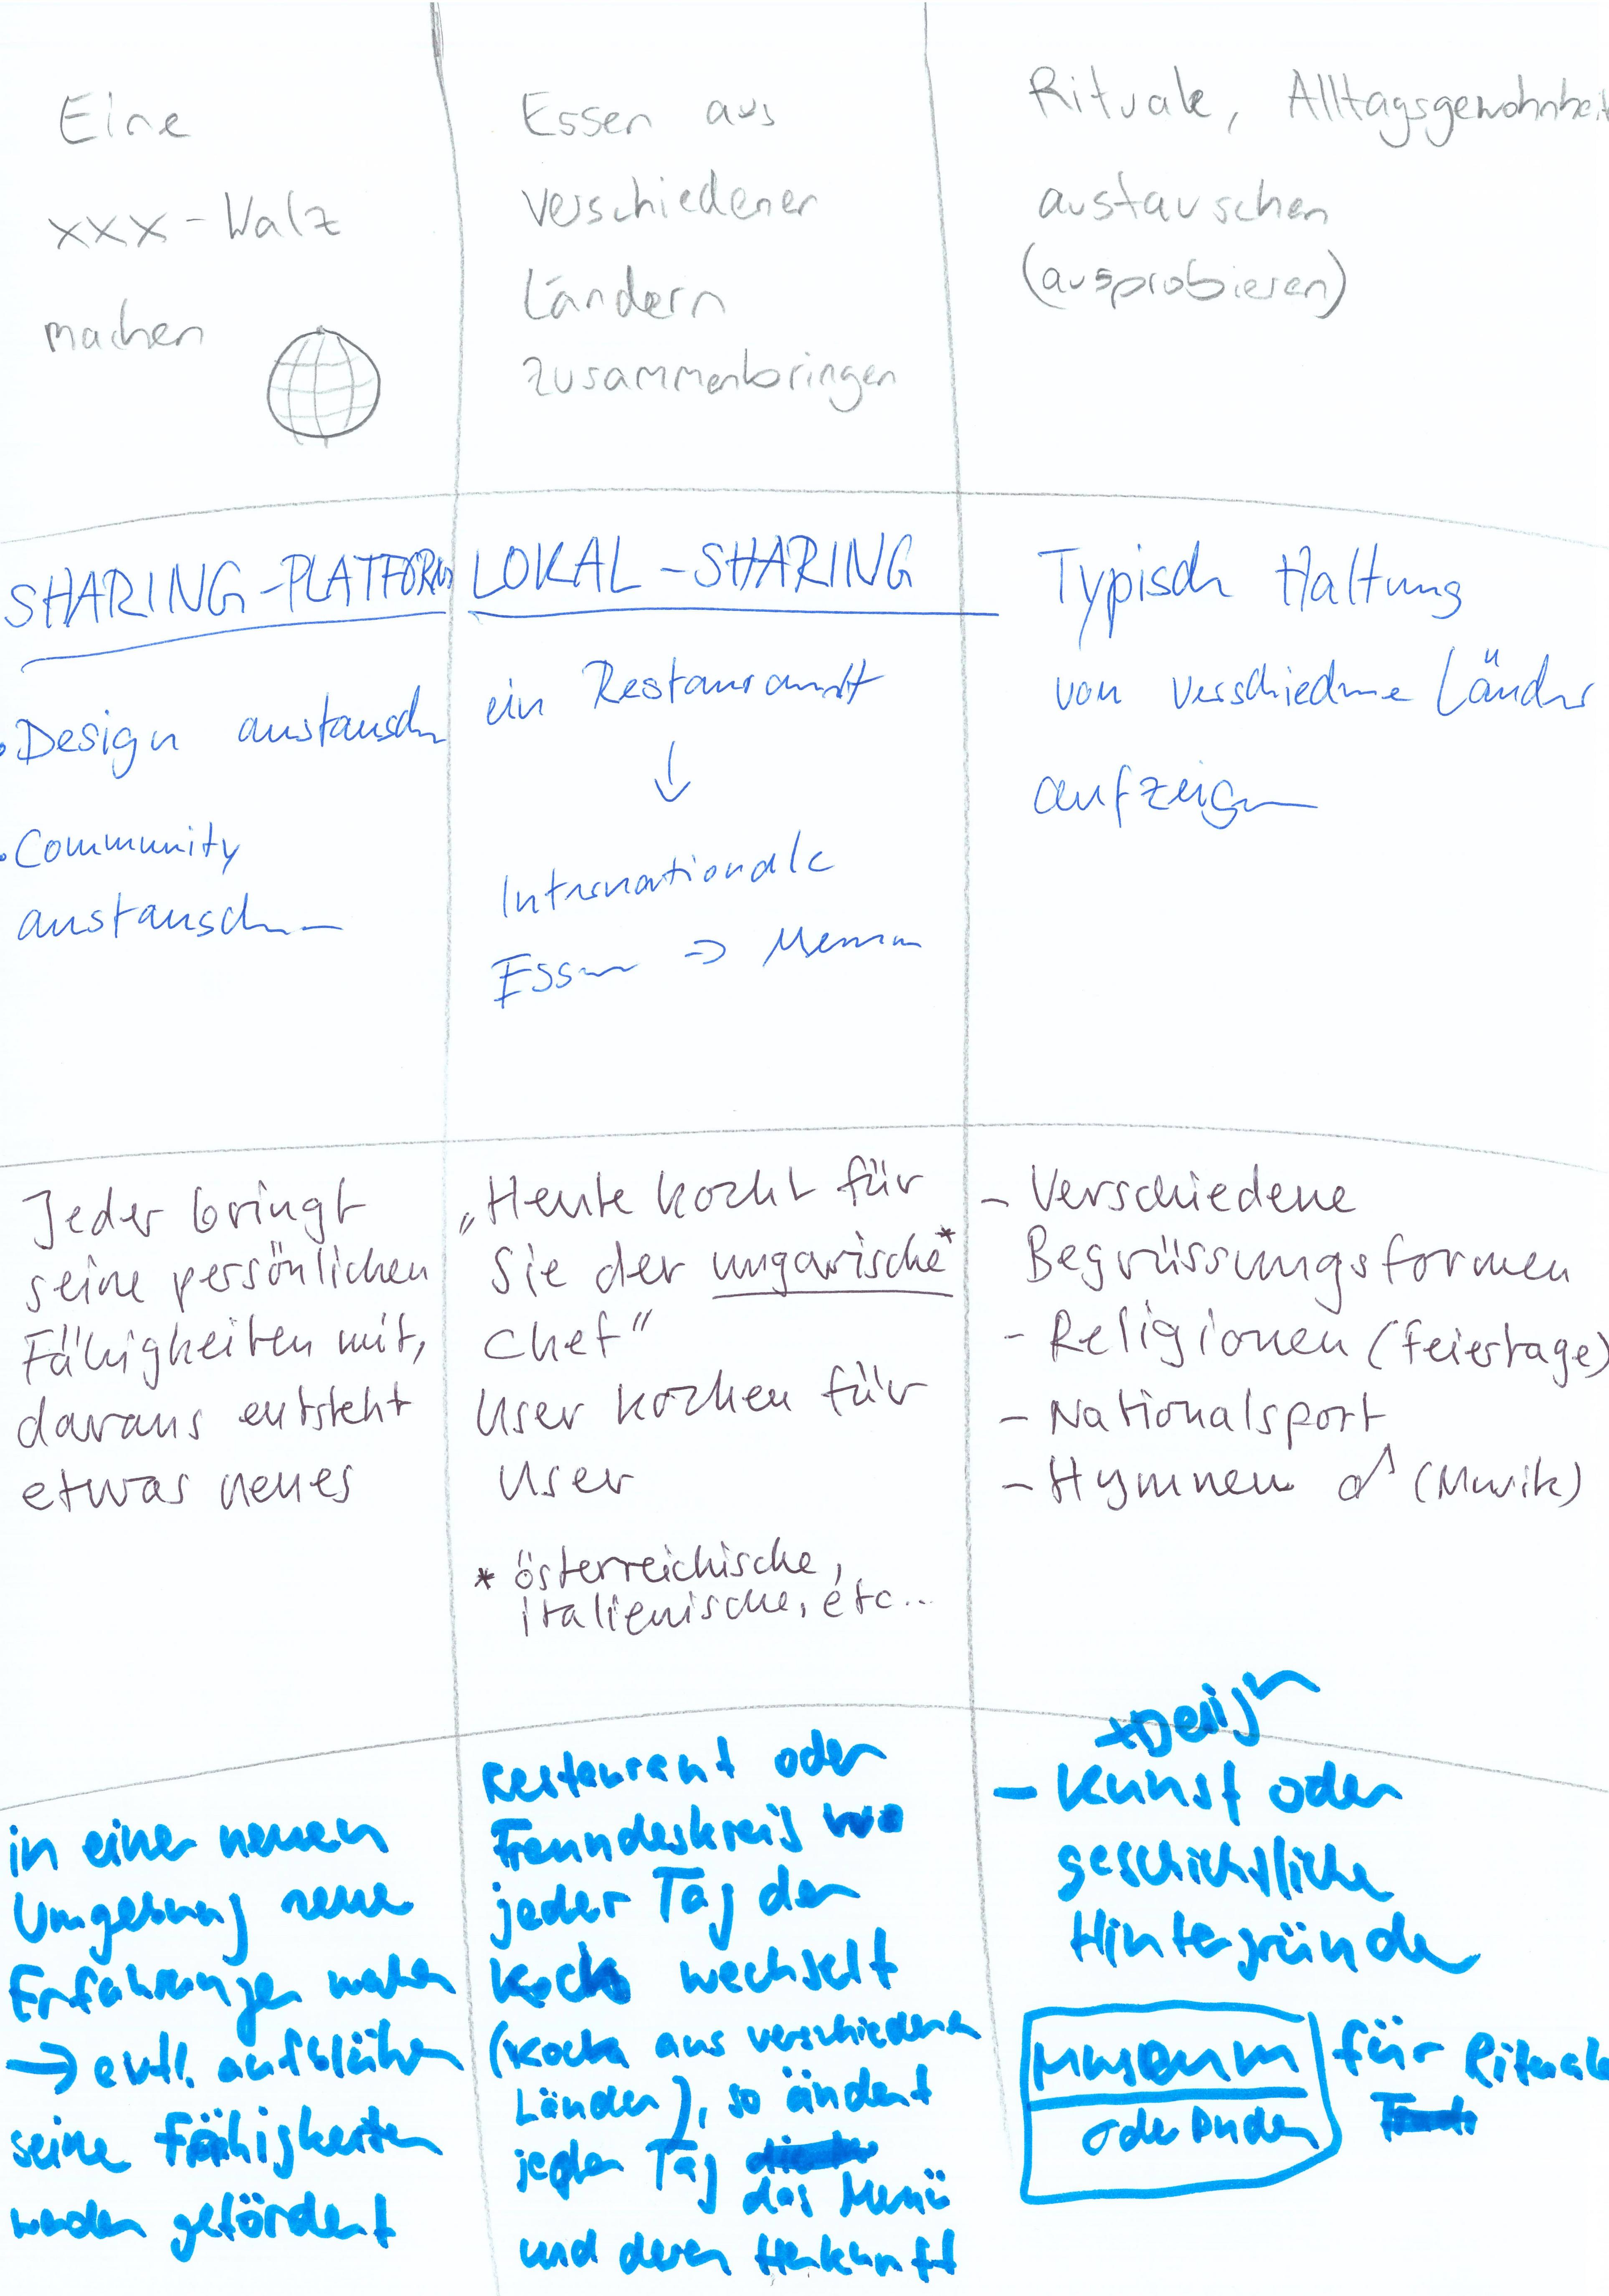 Eine
xxx-Walz
machen
Essen aus
verschiedener
Ländern
zusammenbringen
Rituale, Alltagsgewohnheit
austauschen
(ausprobieren)
SHARING-PLATFORM
• Design austausch
• Community
austauschen
LOKAL-SHARING
ein Restaurant
↓
Internationale
Essen ⇒
Typisch Haltung
von verschiedene Länder
aufzeigen
Jeder bringt
seine persönlichen
Fähigkeiten mit,
daraus entsteht
etwas neues
„Heute kocht für
Sie der ungarische*
Chef"
User kochen für
User
* österreichische,
italienische, etc..
- Verschiedene
Begrüssungsformen
- Religionen (Feiertage)
- Nationalsport
- Hymnen (Musik)
in einer neuen
Umgebung neue
Erfahrungen machen
→ evtl. aufblühen
seine Fähigkeiten
werden gefördert
Restaurant oder
Freundeskreis wo
jeder Tag der
Koch wechselt
(Köche aus verschiedenen
Länder), so ändert
jeden Tag
das Menü
und deren Herkunft
+Design
- Kunst oder
geschichtliche
Hintergründe
Museum für Rituale
oder Duden